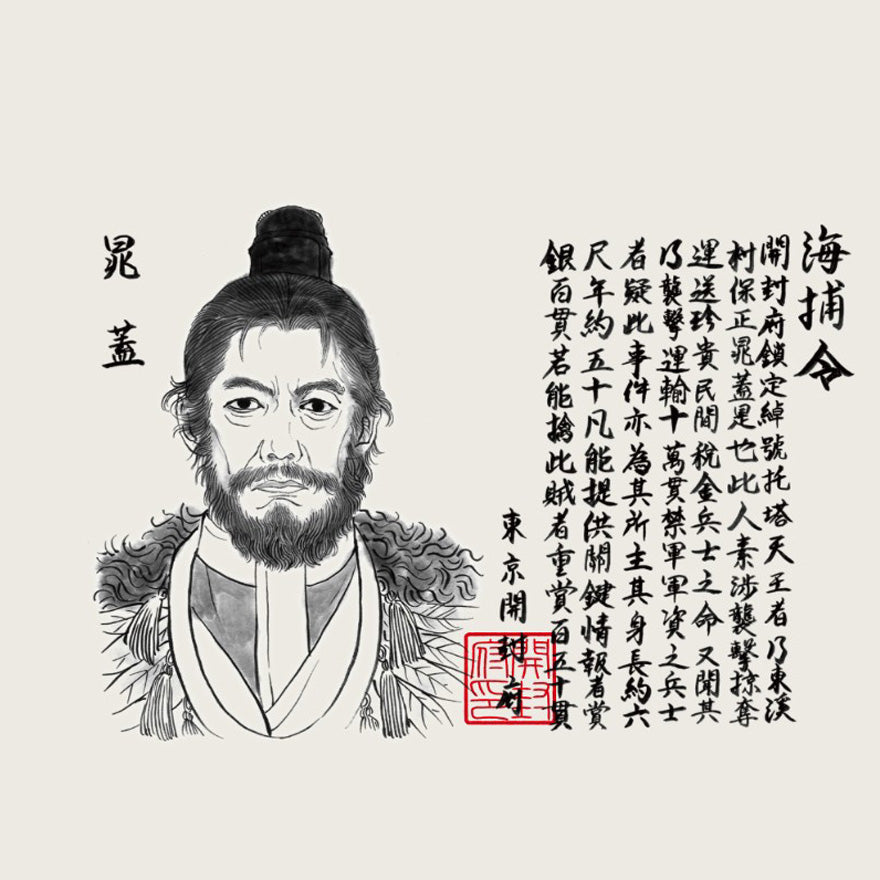 海捕令
開封府鎖定綽號托塔天王者乃東溪
村保正晁蓋是也此人素涉襲擊掠奪
運送珍貴民間稅金兵士之命又聞其
乃襲擊運輸十萬貫禁軍軍資之兵士
者疑此事件亦為其所主其身長約六
尺年約五十凡能提供關鍵情報者賞
銀百貫若能擒此賊者重賞百五十貫
東京開封府
開封府印
晁蓋